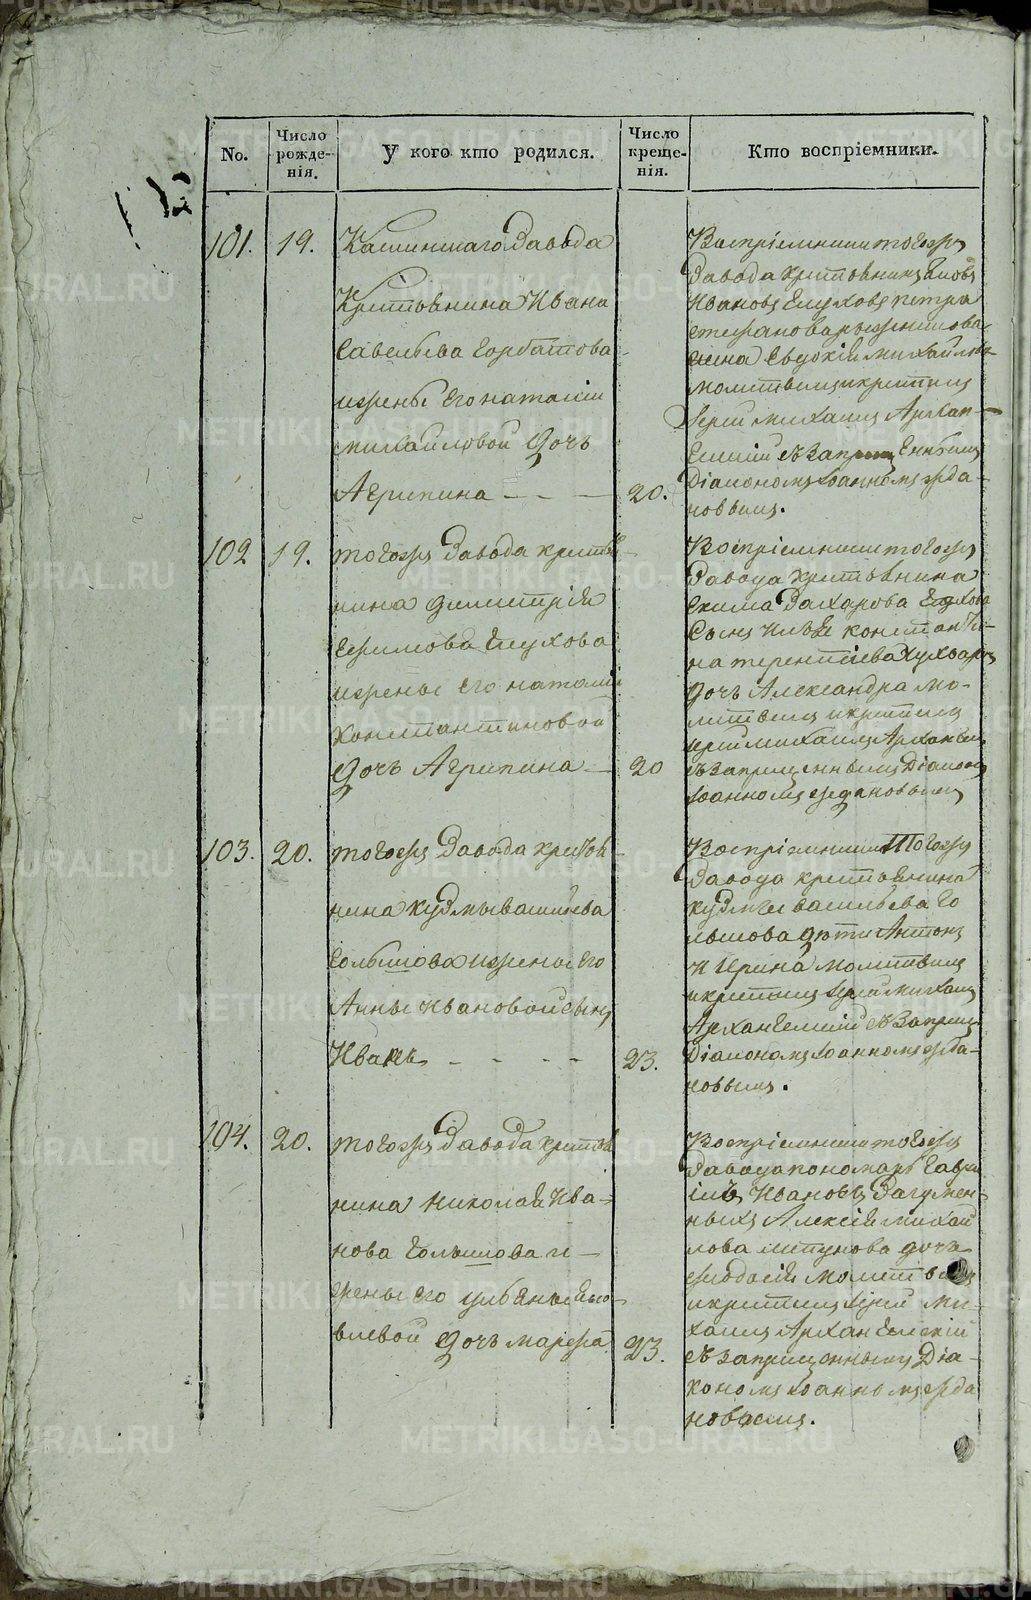 No.
Число рожде-нія.
У кого кто родился.
Число креще-нія.
Кто воспріемники.
101.
19.
Каслинскаго завода
Крестьянина Ивана
Савельева Горбатова
и жены Его наталіи
михайловой дочь
Агрипина
20.
Воспріемники тогожъ
Завода крестьянинъ
Ивановъ Глуховъ петра
Евдокія михайлова
молитвилъ и крестилъ
Іерей михаилъ Архан-
діакономъ Іоанномъ жда-
новымъ.
102
19.
тогожъ Завода крестья-
нина димитрія
Ефимова Глухова
и жены Его наталіи
константиновой
дочь Агрипина
20
Воспріемники тогожъ
Завода крестьянина
Екима Захарова Глухова
Сынъ Илья констан-
на терентіева
дочь Александра мо-
литвилъ и крестилъ
іерей михаилъ Архангель
діакономъ
Іоанномъ ждановымъ
103.
20.
тогожъ Завода крестья-
нина кузмы васильева
Голышова и жены Его
Анны Ивановой сынъ
Иванъ
23.
Воспріемники тогожъ
Завода крестьянина
кузмы васильева Го
лышова дѣти Антонъ
и Ирина молитвилъ
и крестилъ Іерей михаилъ
Архангельскій
Діакономъ Іоанномъ жда-
новымъ.
104.
20.
тогожъ Завода крестья
нина николая Ива-
нова Голышова и
жены его ульяны яко-
влевой дочь марфа
23.
Воспріемники тогожъ
Завода пономарь Гаври
ілъ Ивановъ
Алексія михай
лова дочь
молитвилъ
и крестилъ Іерей ми-
хаилъ Архангельскій
діа-
кономъ Іоанномъ жда
новымъ.
METRIKI.GASO-URAL.RU